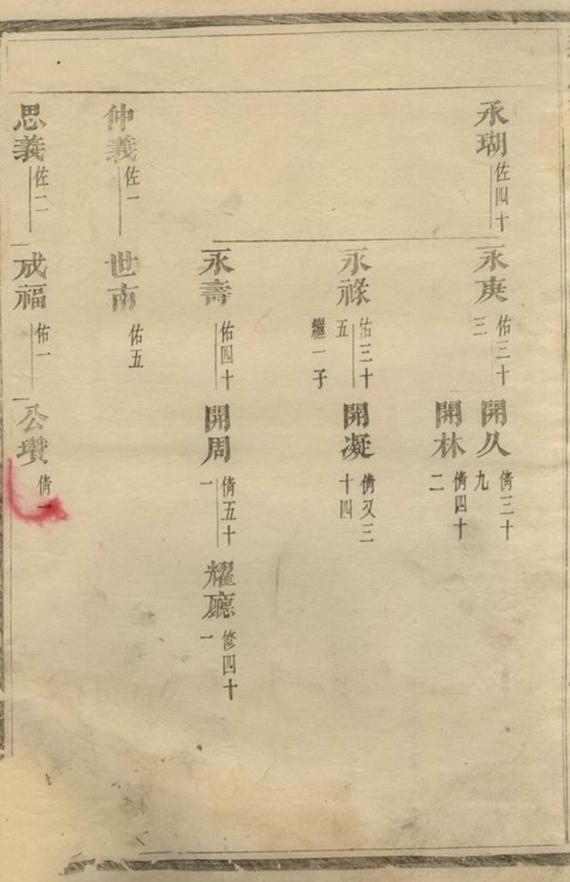 永瑚 佐四十
永庚 佑三十三
開久 倩三十九
開林 倩四十二
永祿 佑三十五
繼一子
開凝 倩又三十四
永壽 佑四十
開周 倩五十一
耀廳 修四十一
仲義 佐一
世南 佑五
思義 佐二
成福 佑一
公瓚 倩一